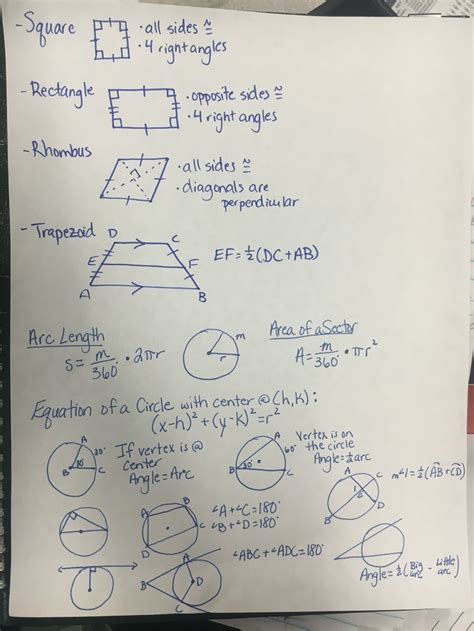 -Square
• all sides ≅
• 4 right angles
-Rectangle
• opposite sides ≅
• 4 right angles
-Rhombus
• all sides ≅
• diagonals are
perpendicular
-Trapezoid
D C
E F
A B
EF = ½(DC + AB)
Arc Length
S = m/360° • 2πr
m
r
Area of a Sector
A = m/360° • πr²
Equation of a Circle with center @ (h,k):
(x-h)² + (y-k)² = r²
A
30°
B 30 C
If vertex is @
center
Angle = Arc
A
60°
B 30 C
Vertex is on
the circle
Angle = ½ arc
A C
1
D B
m∠1 = ½(AB + CD)
A B
D C
∠A + ∠C = 180°
∠B + ∠D = 180°
A
B D
C
∠ABC + ∠ADC = 180°
Angle = ½(Big arc - Little arc)